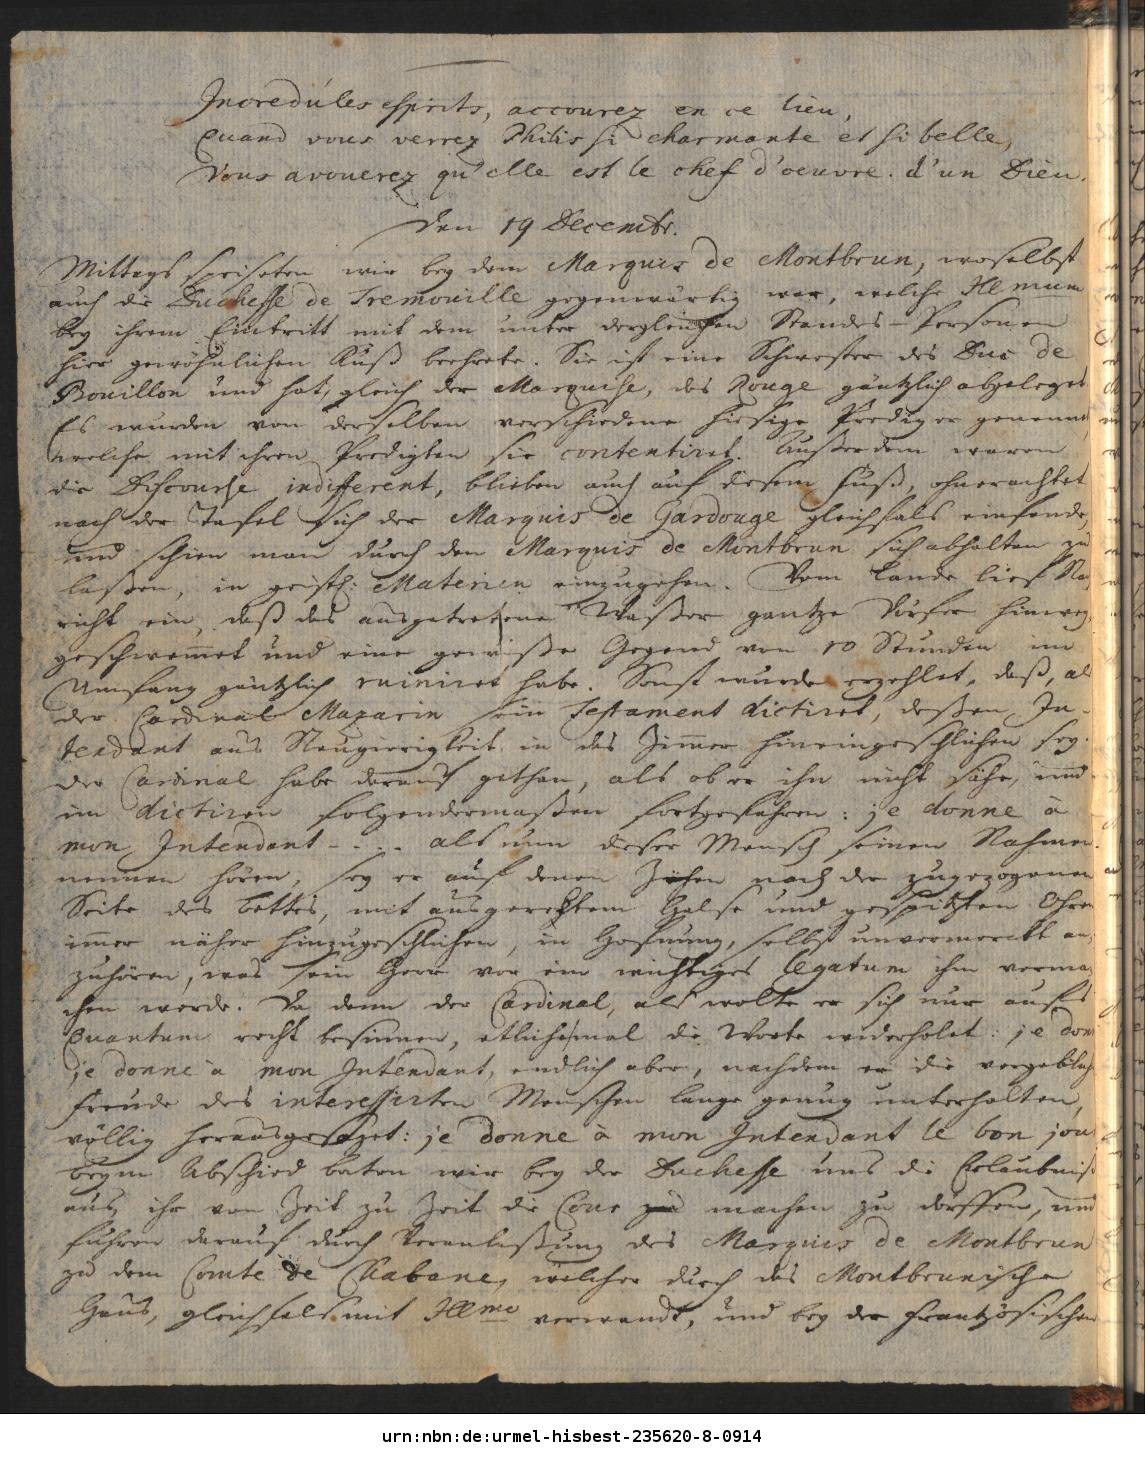 Incredúles esprits, accourez en ce lieu,
Quand vous verrez Philis si charmante et si belle,
Vous avouerez qu'elle est le chef d'oeuvre. d'un Dieu.
den 19 Decembr.
Mittags speiseten wir bey dem Marquis de Montbrun, woselbst
auch die Duchesse de Tremouille gegenwärtig war, welche Illmum
bey ihrem Eintritt mit dem unter dergleichen Standes-Personen
hier gewöhnlichen Kuß beehrte. Sie ist eine Schwester des Duc de
Bouillon und hat, gleich der Marquise, das Rouge gäntzlich abgeleget
Es wurden von derselben verschiedene hiesige Prediger genennt,
welche mit ihren Predigten sie contentiret. Außerdem waren
die Discourse indifferent, blieben auch auf diesem Fuß, ohnerachtet
nach der Tafel sich der Marquis de Gardouge gleichfals einfande,
und schien man durch den Marquis de Montbrun sich abhalten zu
laßen, in geistl: Materien einzugehen. Vom Lande lief Na-
richt ein, daß das ausgetretene Waßer gantze Dörfer hinweg
geschwemmet und eine gewiße Gegend von 10 Stunden im
Umfang gäntzlich ruiniret habe. Sonst wurde erzehlet, daß, als
der Cardinal Mazarin sein Testament dictiret, deßen In-
tendant aus Neugierigkeit in das Zimmer hineingeschlichen sey.
Der Cardinal habe darauf gethan, als ob er ihn nicht sähe, und
im dictiren folgendermaßen fortgefahren: je donne à
mon Intendant - . . . als nun dieser Mensch seinen Nahmen
nennen hören, sey er auf denen Zehen nach der zugezogenen
Seite des Bettes, mit ausgerecktem Halse und gespitzten Ohren
immer näher hinzugeschlichen, in Hofnung, selbst unvermerckt an-
zuhören, was sein Herr vor ein wichtiges legatum ihm verma-
chen werde. Da denn der Cardinal, als wolte er sich nur aufs
Quantum recht besinnen, etlichemal die Worte widerholet: je don
je donne à mon Intendant, endlich aber, nachdem er die vergebliche
Freude des interessirten Menschen lange genug unterhalten,
völlig herausgesaget: je donne à mon Intendant le bon jour
beym Abschied baten wir bey der Duchesse uns die Erlaubniß
aus, ihr von Zeit zu Zeit die Cour machen zu dörffen, und
fuhren darauf durch Veranlaßung des Marquis de Montbrun
zu dem Comte de Chabane, welcher durch das Montbrunische
Haus, gleichfals mit Illmo verwandt, und bey der Frantzösischen
urn:nbn:de:urmel-hisbest-235620-8-0914